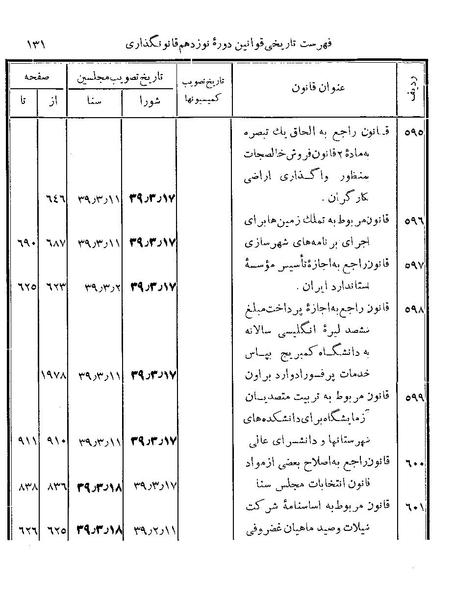 فهرست تاریخی قوانین دورهٔ نوزدهم قانونگذاری ۱۳۱
ردیف عنوان قانون تاریخ تصویب کمیسیونها تاریخ تصویب مجلسین صفحه
شورا سنا از تا
۵۹۵ قانون راجع به الحاق یك تبصره
به مادهٔ ۲ قانون فروش خالصجات
بمنظور واگذاری اراضی
بکارگران . ۳۹٫۳٫۱۷ ۳۹٫۳٫۱۱ ۶۴۶
۵۹۶ قانون مربوط به تملك زمین‌ها برای
اجرای برنامه‌های شهرسازی ۳۹٫۳٫۱۷ ۳۹٫۳٫۱۱ ۶۸۷ ۶۹۰
۵۹۷ قانون راجع به اجازهٔ تأسیس مؤسسهٔ
استاندارد ایران . ۳۹٫۳٫۱۷ ۳۹٫۳٫۲ ۶۲۳ ۶۲۵
۵۹۸ قانون راجع به اجازهٔ پرداخت مبلغ
ششصد لیرهٔ انگلیسی سالانه
به دانشگاه کمبریج بپاس
خدمات پرفسور ادوارد براون ۳۹٫۳٫۱۷ ۳۹٫۳٫۱۱ ۱۹۷۸
۵۹۹ قانون مربوط به تربیت متصدیان
آزمایشگاه برای دانشکده‌های
شهرستانها و دانشسرای عالی ۳۹٫۳٫۱۷ ۳۹٫۳٫۱۱ ۹۱۰ ۹۱۱
۶۰۰ قانون راجع به اصلاح بعضی از مواد
قانون انتخابات مجلس سنا ۳۹٫۳٫۱۷ ۳۹٫۳٫۱۸ ۸۳۶ ۸۳۸
۶۰۱ قانون مربوط به اساسنامهٔ شرکت
شیلات و صید ماهیان غضروفی ۳۹٫۲٫۱۱ ۳۹٫۳٫۱۸ ۶۲۵ ۶۲۶